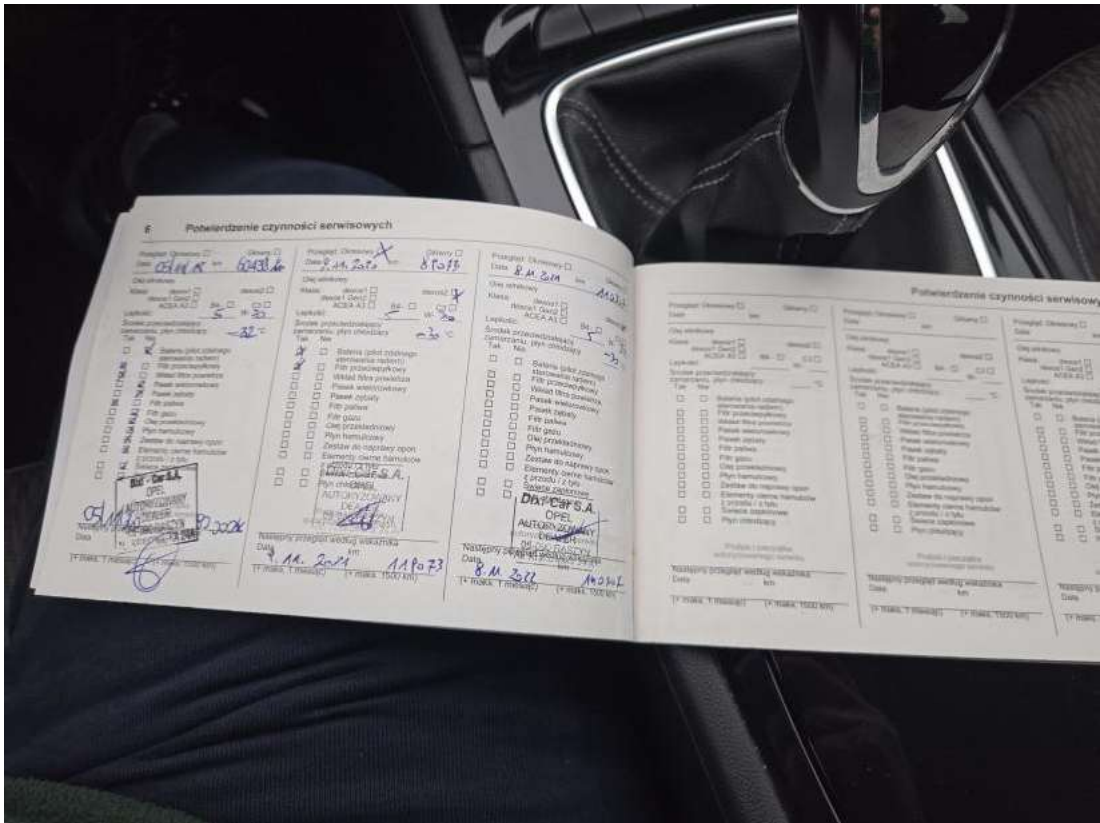 6 Potwierdzenie czynności serwisowych
Przegląd: Okresowy Główny
Data km 60438
Olej silnikowy
Klasa: dexos1 dexos2
dexos1 Gen2
ACEA A3
Lepkość: 5 W- 30
Środek przeciwdziałający
zamarzaniu, płyn chłodzący -32 °C
Tak Nie
Bateria (pilot zdalnego
sterowania radiem)
Filtr przeciwpyłkowy
Wkład filtra powietrza
Pasek wielorowkowy
Pasek zębaty
Filtr paliwa
Filtr gazu
Olej przekładniowy
Płyn hamulcowy
Zestaw do naprawy opon
Elementy cierne hamulców
z przodu / z tyłu
Dixi-Car S.A.
OPEL
AUTORYZOWANY
DEALER
Data
(+ maks. 1 miesiąc) (+ maks. 1500 km)
Przegląd: Okresowy X Główny
Data 9.11.2020 89073
Olej silnikowy
Klasa: dexos1 dexos2 X
dexos1 Gen2
ACEA A3
Lepkość: 5 W- 30
Środek przeciwdziałający
zamarzaniu, płyn chłodzący -30 °C
Tak Nie
Bateria (pilot zdalnego
sterowania radiem)
Filtr przeciwpyłkowy
Wkład filtra powietrza
Pasek wielorowkowy
Pasek zębaty
Filtr paliwa
Filtr gazu
Olej przekładniowy
Płyn hamulcowy
Zestaw do naprawy opon
Elementy cierne hamulców
z przodu / z tyłu
Płyn chłodzący
Dixi-Car S.A.
OPEL
AUTORYZOWANY
DEALER
Następny przegląd według wskaźnika
Data km
9.11.2021 119073
(+ maks. 1 miesiąc) (+ maks. 1500 km)
Przegląd: Okresowy Główny
Data 8.11.2021 km
Olej silnikowy
Klasa: dexos1
dexos1 Gen2
ACEA A3
Lepkość: 5 W-
Środek przeciwdziałający
zamarzaniu, płyn chłodzący -30 °C
Tak Nie
Bateria (pilot zdalnego
sterowania radiem)
Filtr przeciwpyłkowy
Wkład filtra powietrza
Pasek wielorowkowy
Pasek zębaty
Filtr paliwa
Filtr gazu
Olej przekładniowy
Płyn hamulcowy
Zestaw do naprawy opon
Elementy cierne hamulców
z przodu / z tyłu
Świece zapłonowe
Dixi-Car S.A.
OPEL
AUTORYZOWANY
DEALER
Następny przegląd według wskaźnika
Data km
8.11.2022
(+ maks. 1 miesiąc) (+ maks. 1500 km)
Potwierdzenie czynności serwisowy
Przegląd: Okresowy Główny
Data km
Olej silnikowy
Klasa: dexos1 dexos2
dexos1 Gen2
ACEA A3
Lepkość:
Środek przeciwdziałający
zamarzaniu, płyn chłodzący °C
Tak Nie
Bateria (pilot zdalnego
sterowania radiem)
Filtr przeciwpyłkowy
Wkład filtra powietrza
Pasek wielorowkowy
Pasek zębaty
Filtr paliwa
Filtr gazu
Olej przekładniowy
Płyn hamulcowy
Zestaw do naprawy opon
Elementy cierne hamulców
z przodu / z tyłu
Świece zapłonowe
Płyn chłodzący
Następny przegląd według wskaźnika
Data km
(+ maks. 1 miesiąc) (+ maks. 1500 km)
Przegląd: Okresowy Główny
Data km
Olej silnikowy
Tak Nie
Bateria (pilot zdalnego
sterowania radiem)
Filtr przeciwpyłkowy
Wkład filtra powietrza
Pasek wielorowkowy
Pasek zębaty
Filtr paliwa
Filtr gazu
Olej przekładniowy
Płyn hamulcowy
Zestaw do naprawy opon
Elementy cierne hamulców
z przodu / z tyłu
Świece zapłonowe
Płyn chłodzący
Następny przegląd według wskaźnika
Data km
(+ maks. 1 miesiąc) (+ maks. 1500 km)
Przegląd: Okresowy
Data
Olej silnikowy
Tak Nie
Data
(+ maks. 1 miesiąc)